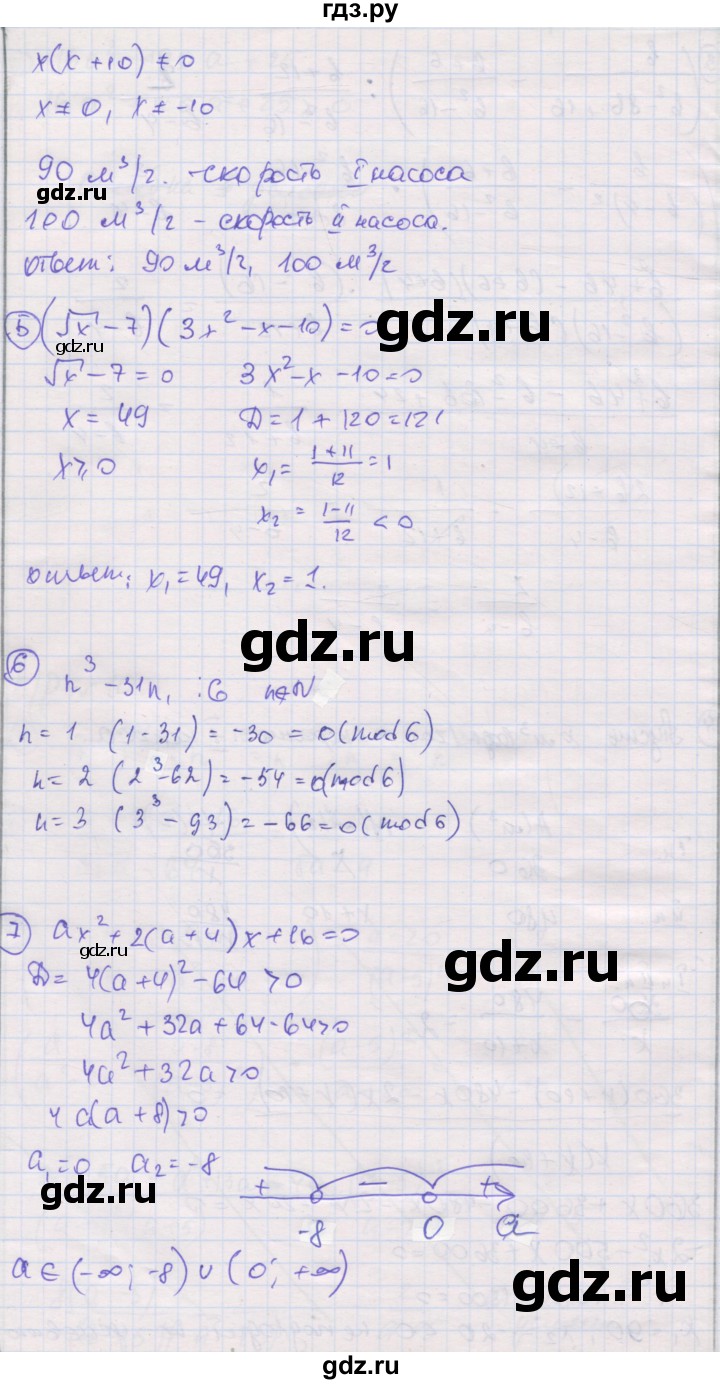 гдз.ру
x(x+10) ≠ 0
x ≠ 0, x ≠ -10
90 м³/г. - скорость I насоса
gdz.ru
100 м³/г - скорость II насоса.
ответ: 90 м³/г, 100 м³/г
⑤ (√x - 7)(3x² - x - 10) = 0
gdz.ru
gdz.ru
√x - 7 = 0 3x² - x - 10 = 0
x = 49 D = 1 + 120 = 121
x ⩾ 0 x₁ = (1+11)/12 = 1
x₂ = (1-11)/12 < 0
ответ: x₁ = 49, x₂ = 1.
gdz.ru
⑥ n³ - 31n, ⋮6 n∈N
gdz.ru
n = 1 (1 - 31) = -30 = 0(mod6)
n = 2 (2³ - 62) = -54 = 0(mod6)
n = 3 (3³ - 93) = -66 = 0(mod6)
⑦ ax² + 2(a+4)x + 16 = 0
gdz.ru
D = 4(a+4)² - 64 > 0
gdz.ru
4a² + 32a + 64 - 64 > 0
4a² + 32a > 0
4a(a+8) > 0
a₁ = 0 a₂ = -8
gdz.ru
+ − +
-8 0 a
a ∈ (-∞; -8) ∪ (0; +∞)
gdz.ru
gdz.ru